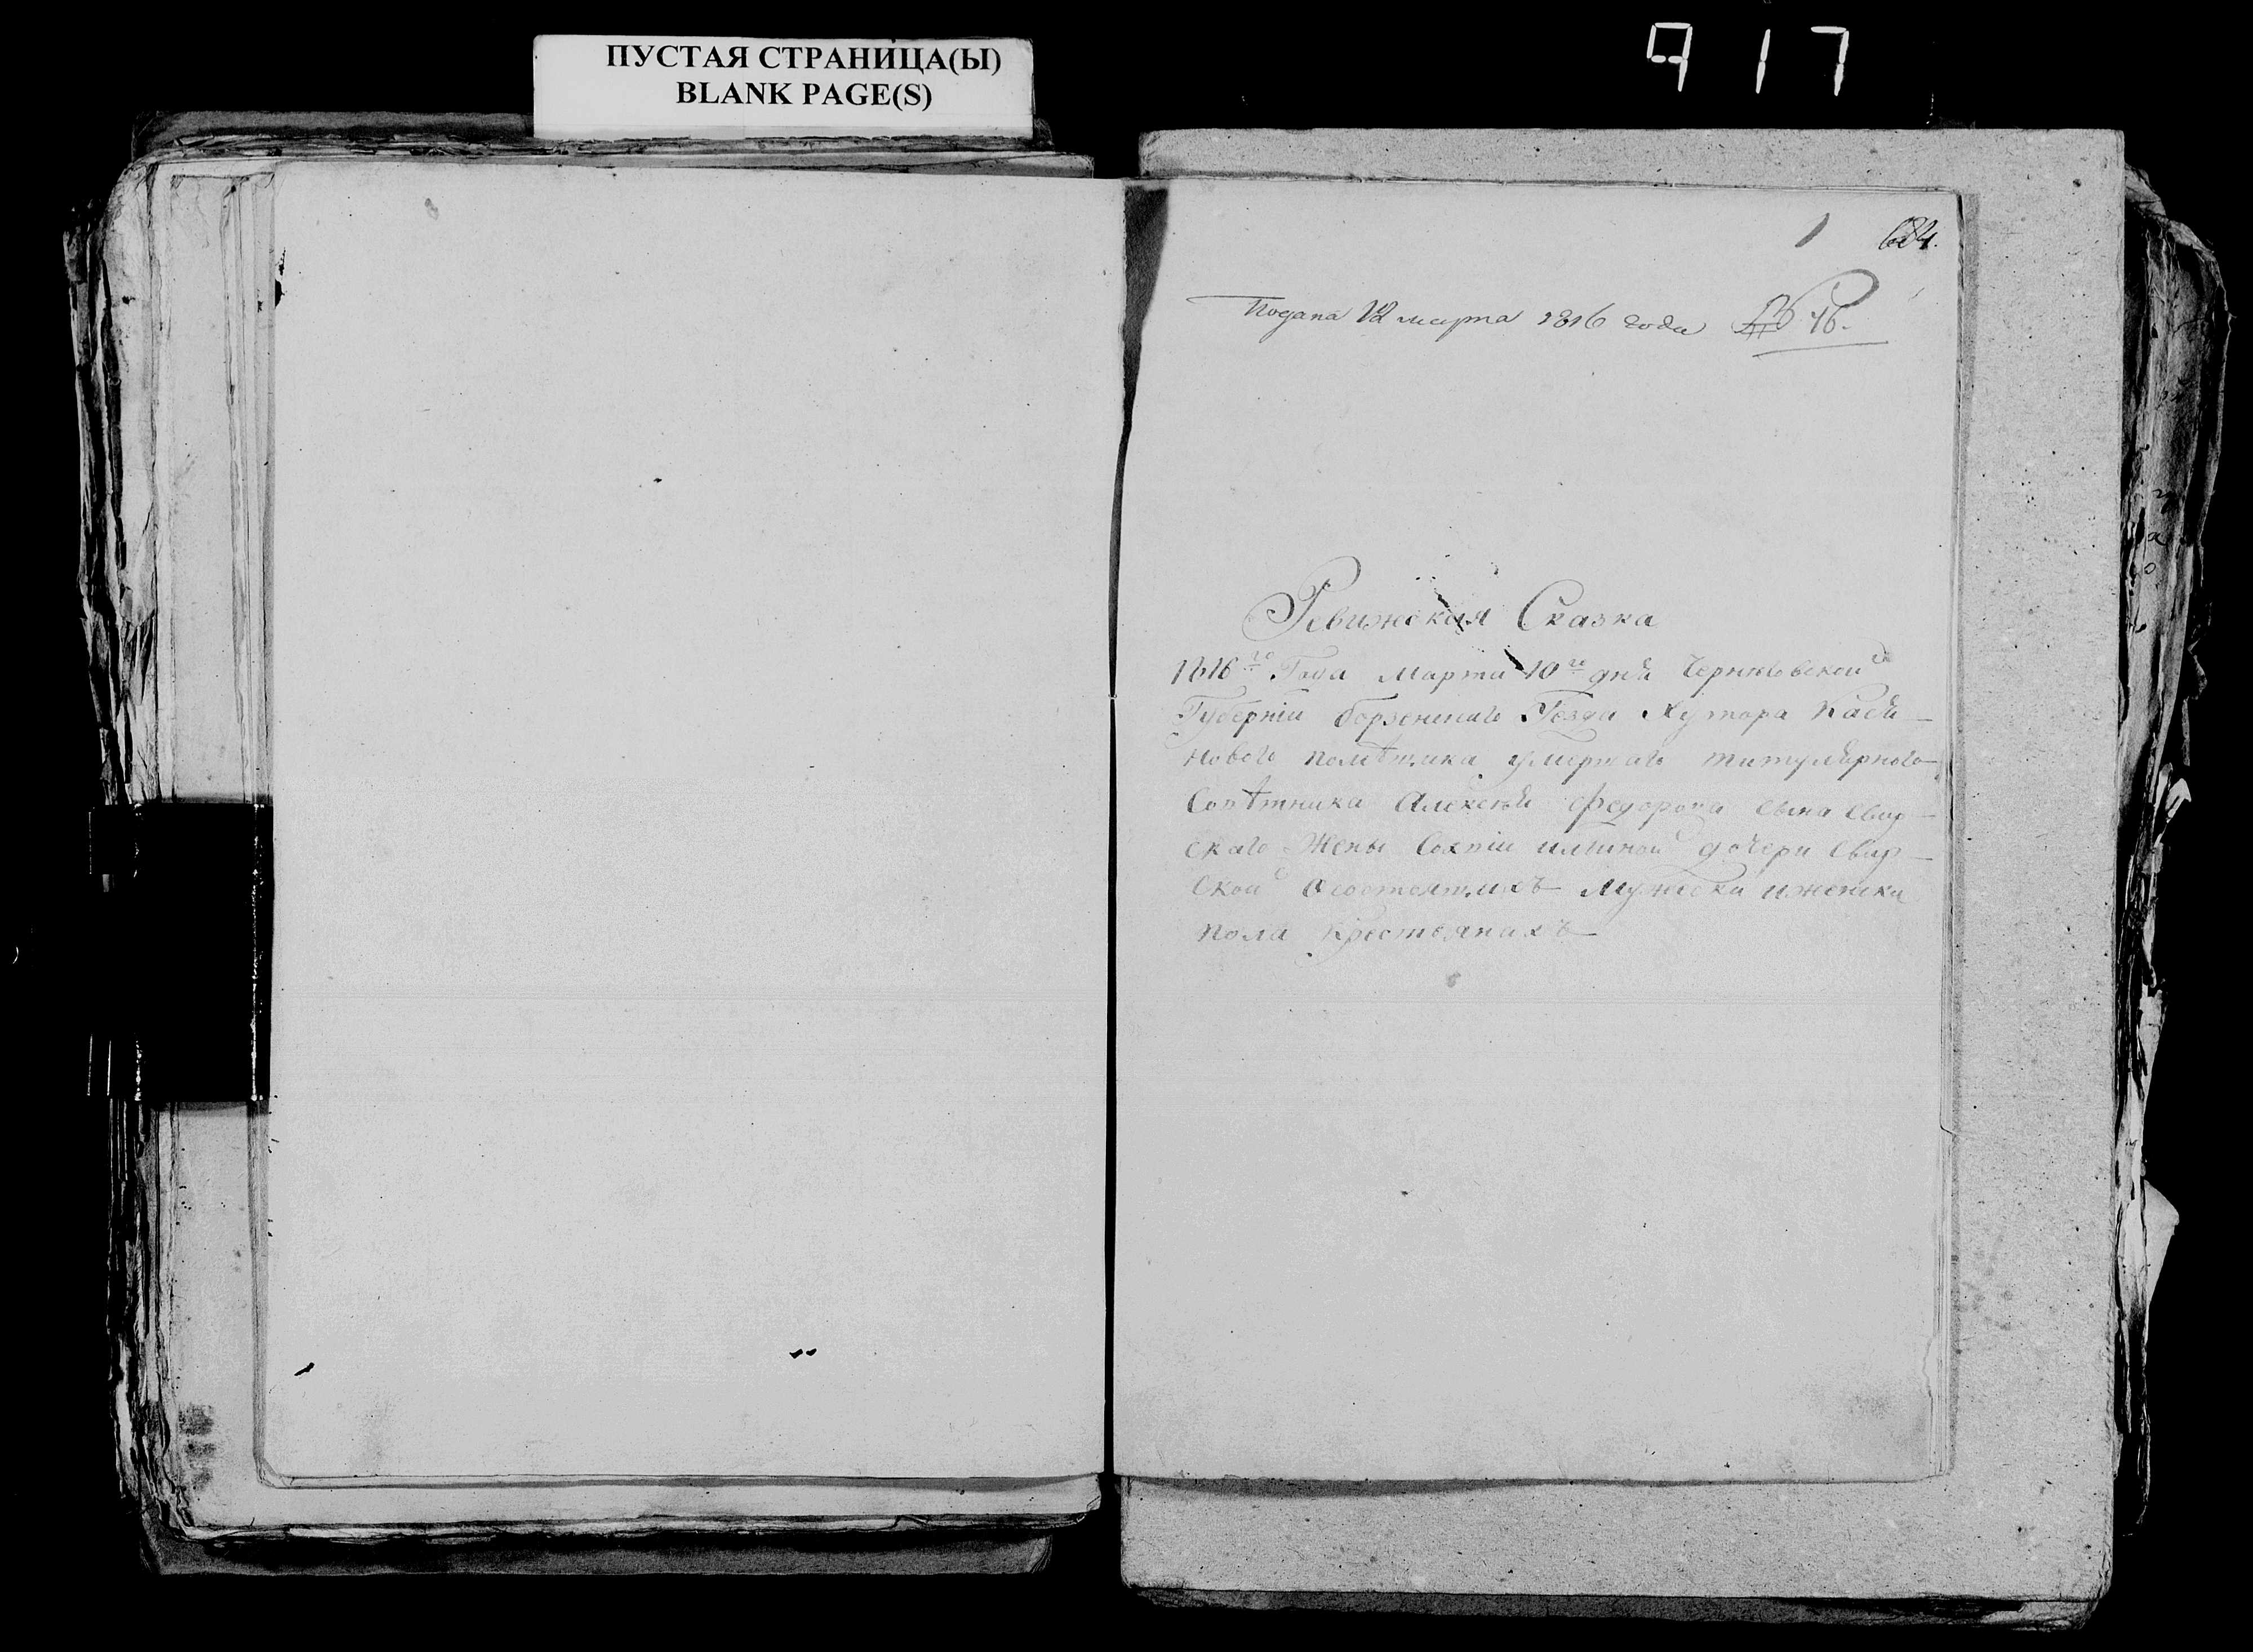 ПУСТАЯ СТРАНИЦА(Ы)
BLANK PAGE(S)
917
1 684.
Подана 12 марта 1816 года № 46.
Ревижская Сказка
1816го Года марта 10го дня Черниговской
Губернiи борзенскаго Уезда Хутора
новаго помѣщика умершаго титулярного
Совѣтника Алексѣя Федорова сына Свир
скаго Жены Софiи дочери Свир
ской Осостоящихъ мужеска иженска
пола крестьянахъ